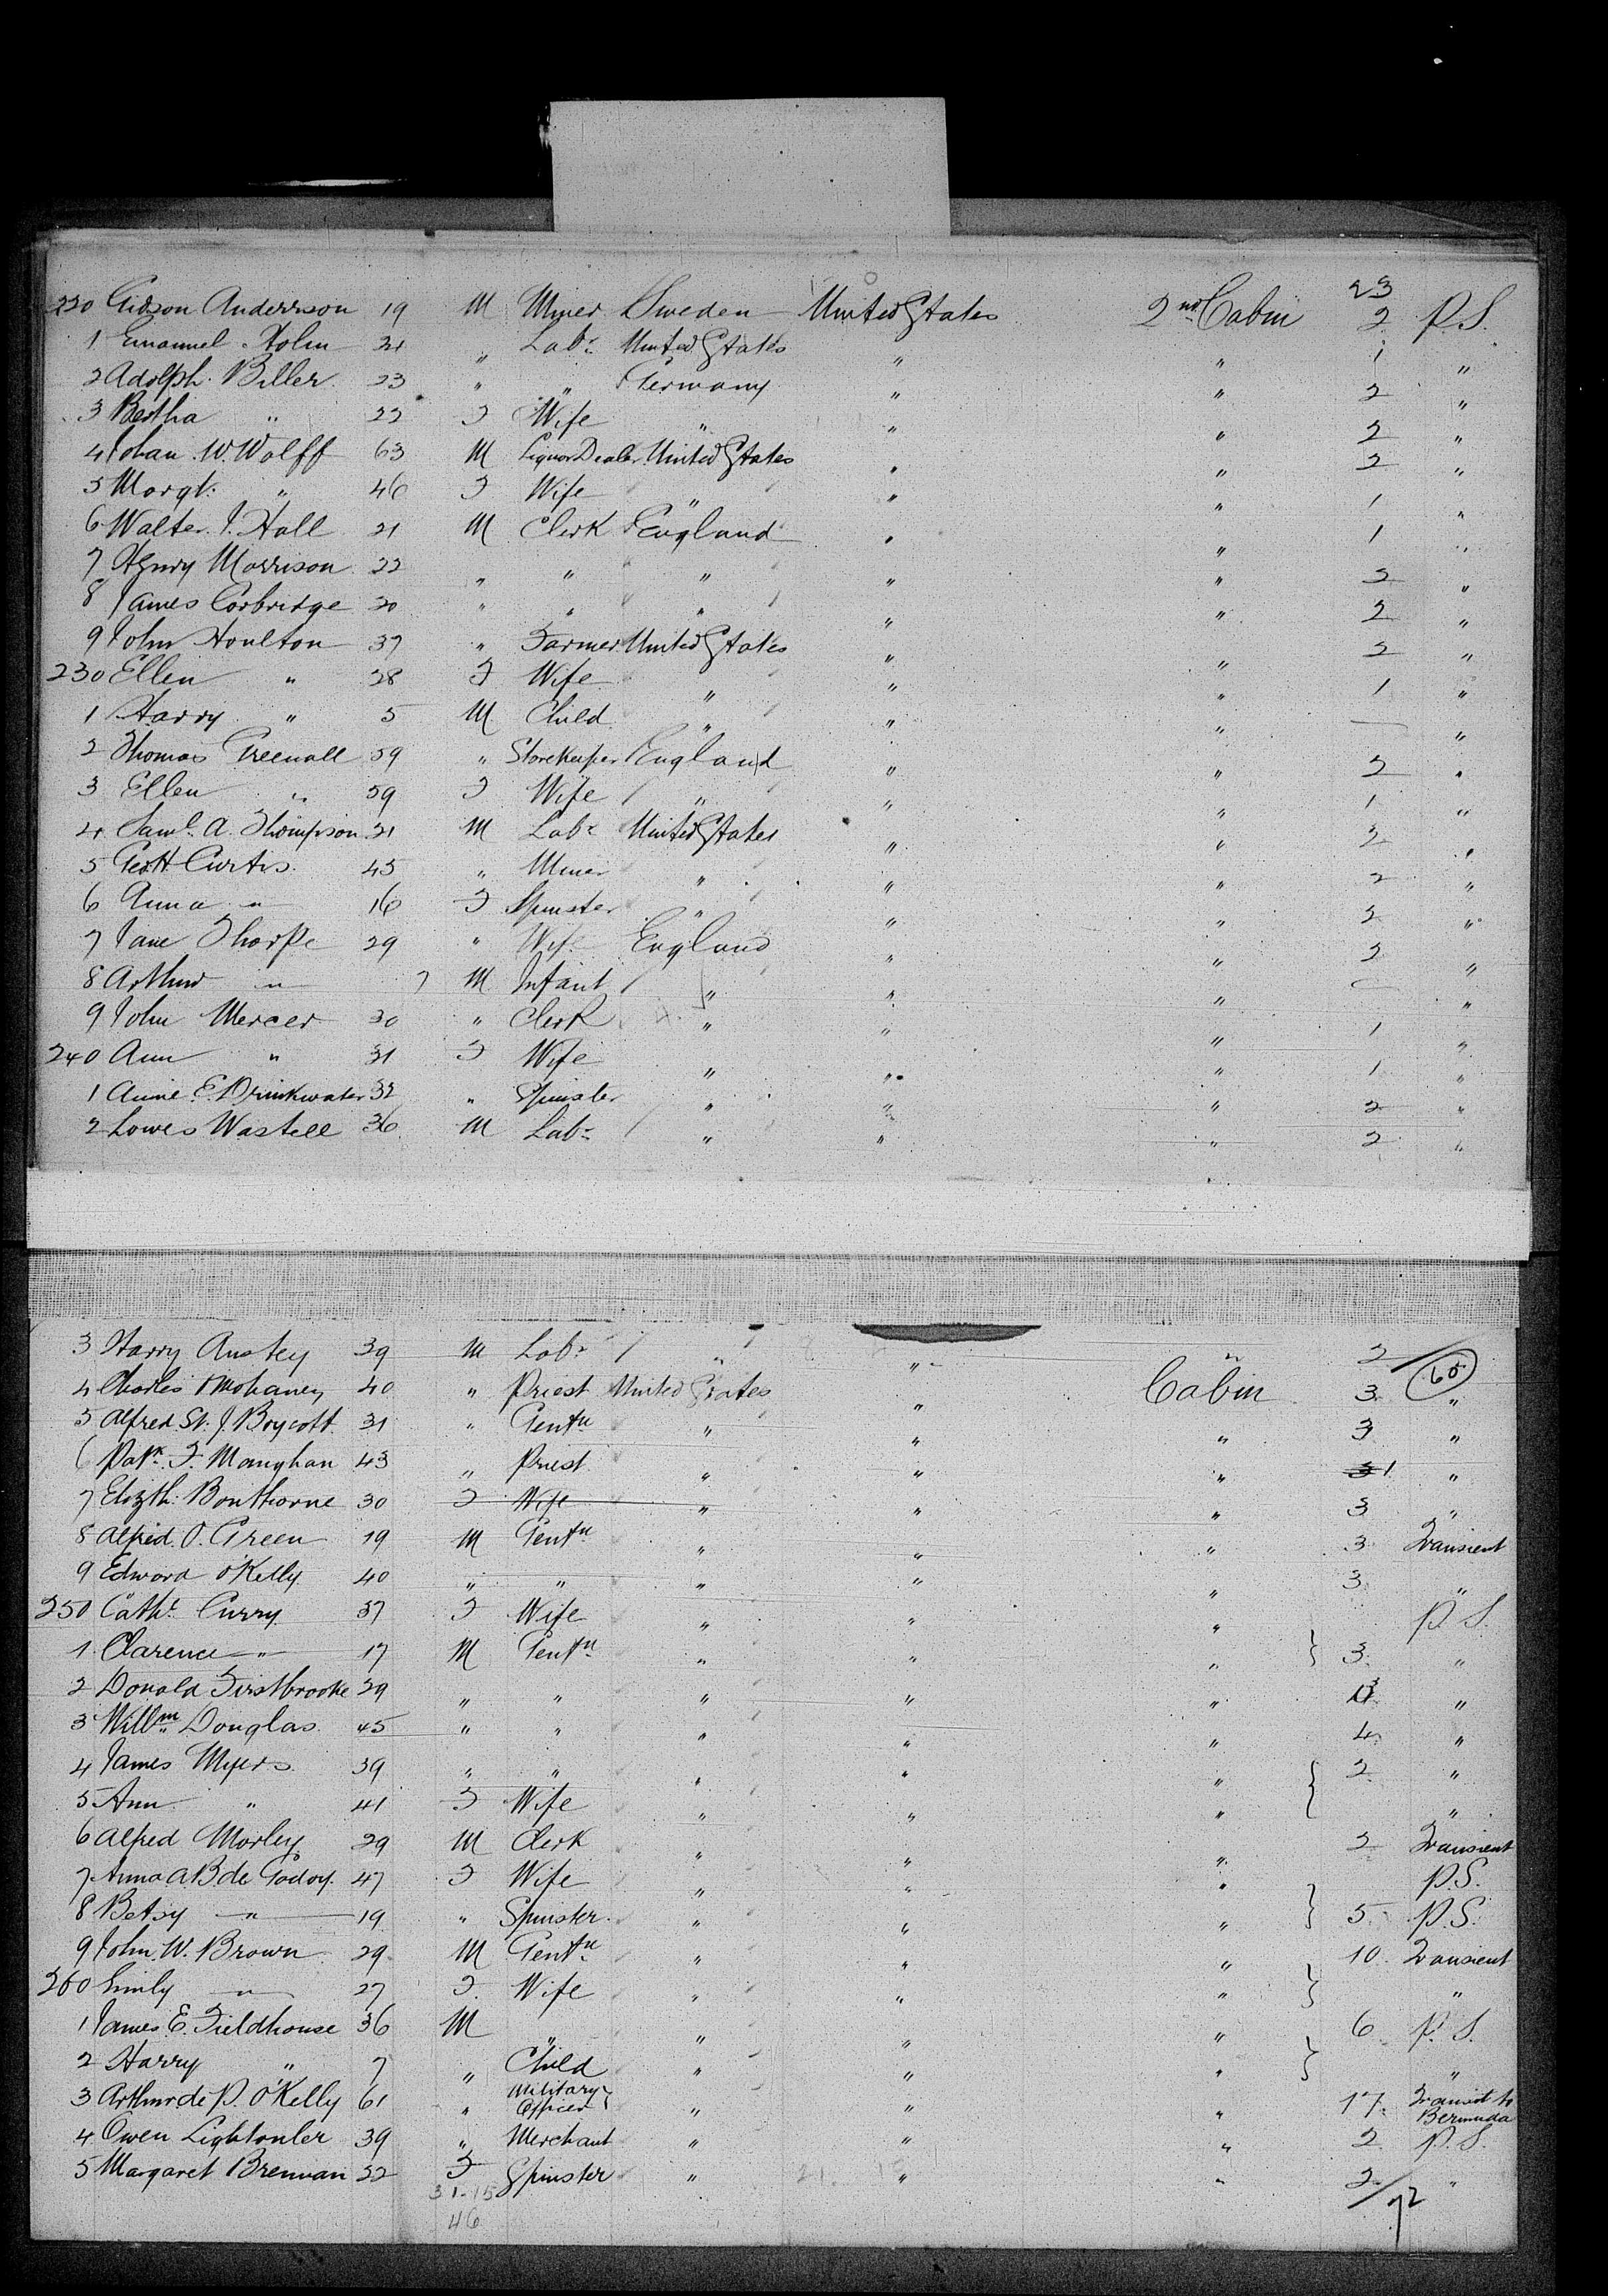 23
220 Gidson Anderson 19 M Miner Sweden United States 2nd Cabin 2 P.S.
1 Emanuel Holm 21 " Labr United States " " 1 "
2 Adolph Biller 23 " " Germany " " 2 "
3 Bertha " 22 F Wife " " " 2 "
4 Johan W. Wolff 63 M Liquor Dealer United States " " 2 "
5 Margt. " 46 F Wife " " " 1 "
6 Walter J. Hall 21 M Clerk England " " 1 "
7 Henry Morrison 22 " " " " " 2 "
8 James Corbridge 20 " " " " " 2 "
9 John Houlton 37 " Farmer United States " " 2 "
230 Ellen " 28 F Wife " " " 1 "
1 Harry " 5 M Child " " " — "
2 Thomas Greenall 59 " Storekeeper England " " 2 "
3 Ellen " 59 F Wife " " " 1 "
4 Saml. A. Thompson 21 M Labr United States " " 2 "
5 Geo H Curtis 45 " Miner " " " 2 "
6 Anna " 16 F Spinster " " " 2 "
7 Jane Thorpe 29 " Wife England " " 2 "
8 Arthur " 7 M Infant " " " — "
9 John Mercer 30 " Clerk " " " 1 "
240 Ann " 31 F Wife " " " 1 "
1 Annie E. Drinkwater 32 " Spinster " " " 2 "
2 Lowes Wastell 36 M Labr " " " 2 "
3 Harry Anstey 39 M Labr " " " 2
4 Charles Mohaney 40 " Priest United States " Cabin 3 60 "
5 Alfred St. J. Boycott 31 " Gentn " " " 3 "
6 Patk. F. Manghan 43 " Priest " " " 1 "
7 Elizth. Bonthorne 30 F Wife " " " 3 "
8 Alfred O. Green 19 M Gentn " " " 3 Transient
9 Edward O'Kelly 40 " " " " " 3 "
250 Cathe Curry 37 F Wife " " " P.S.
1 Clarence " 17 M Gentn " " " } 3 "
2 Donald Firstbrooke 29 " " " " " 3 "
3 Willm Douglas 45 " " " " " 4 "
4 James Myers 39 " " " " " { 2 "
5 Ann " 41 F Wife " " " "
6 Alfred Morley 29 M Clerk " " " 2 Transient
7 Anna A B de Godoy 47 F Wife " " " P.S.
8 Betsy " 19 " Spinster " " " } 5 P.S.
9 John W. Brown 29 M Gentn " " " 10 Transient
260 Emily " 27 F Wife " " " } "
1 James E. Fieldhouse 36 M " " " " 6 P.S.
2 Harry " 7 " Child " " " } "
3 Arthur de P. O'Kelly 61 " Military Officer " " " 17 Transit to Bermuda
4 Owen Lightouler 39 " Merchant " " " 2 P.S.
5 Margaret Brennan 22 F Spinster " " " 2 "
31-15 72
46